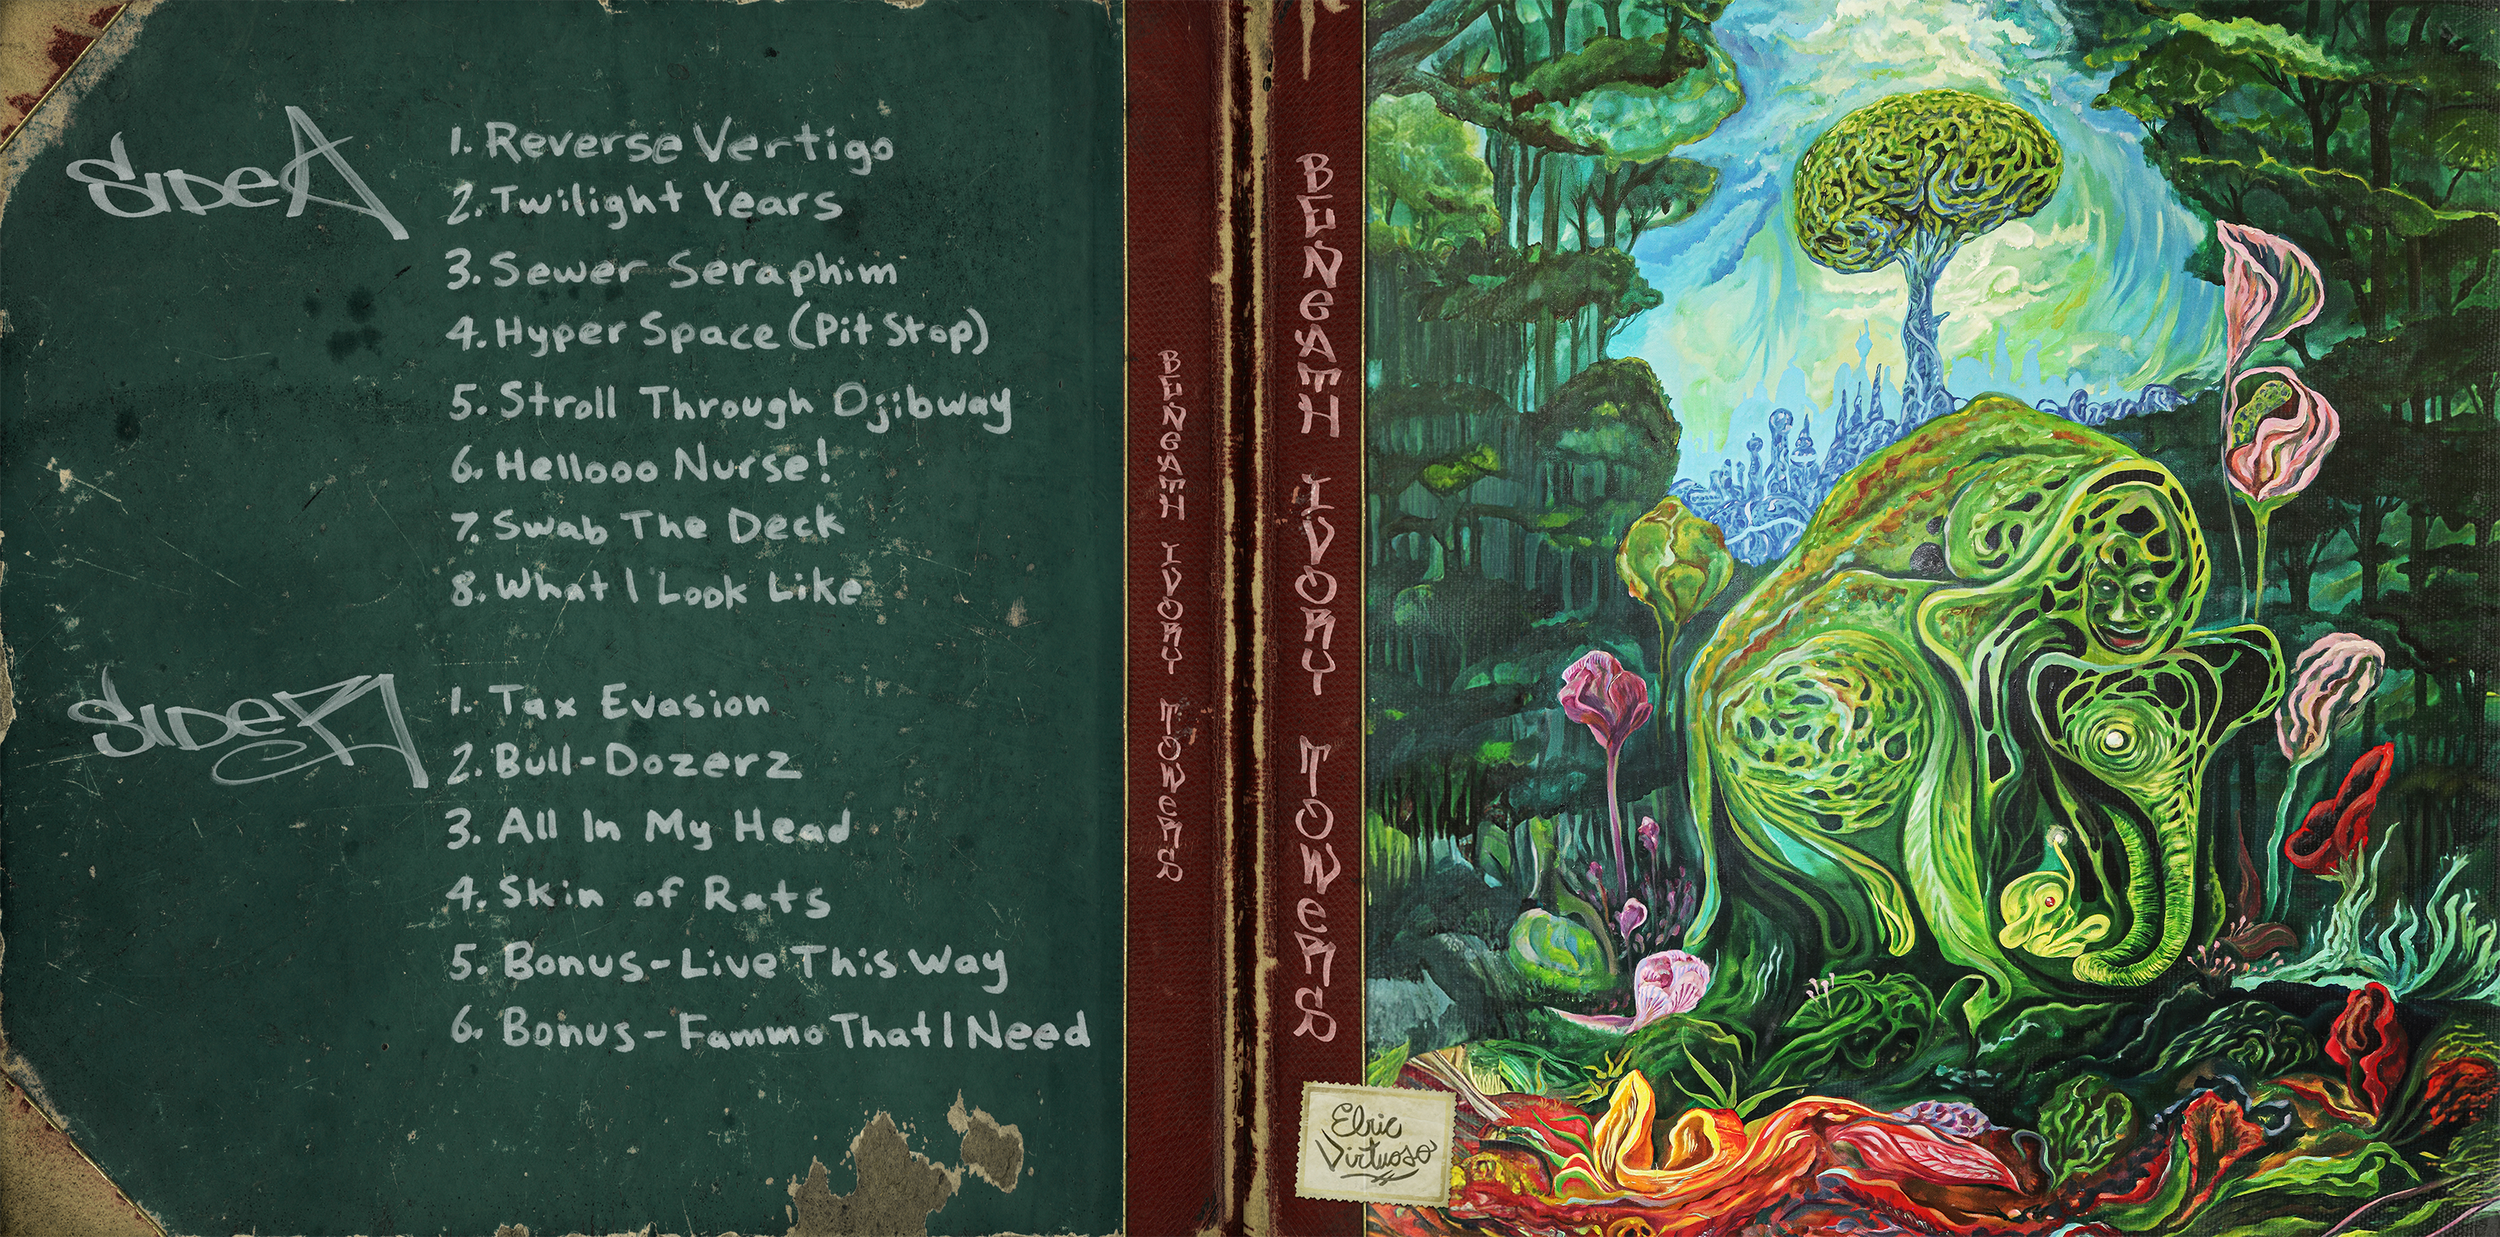 Side A
1. Reverse Vertigo
2. Twilight Years
3. Sewer Seraphim
4. Hyper Space (Pit Stop)
5. Stroll Through Ojibway
6. Hellooo Nurse!
7. Swab The Deck
8. What I Look Like
Side
1. Tax Evasion
2. Bull-Dozerz
3. All In My Head
4. Skin of Rats
5. Bonus-Live This Way
6. Bonus-Fammo That I Need
BENEATH IVORY TOWERS
BENEATH IVORY TOWERS
Elric
Virtuoso